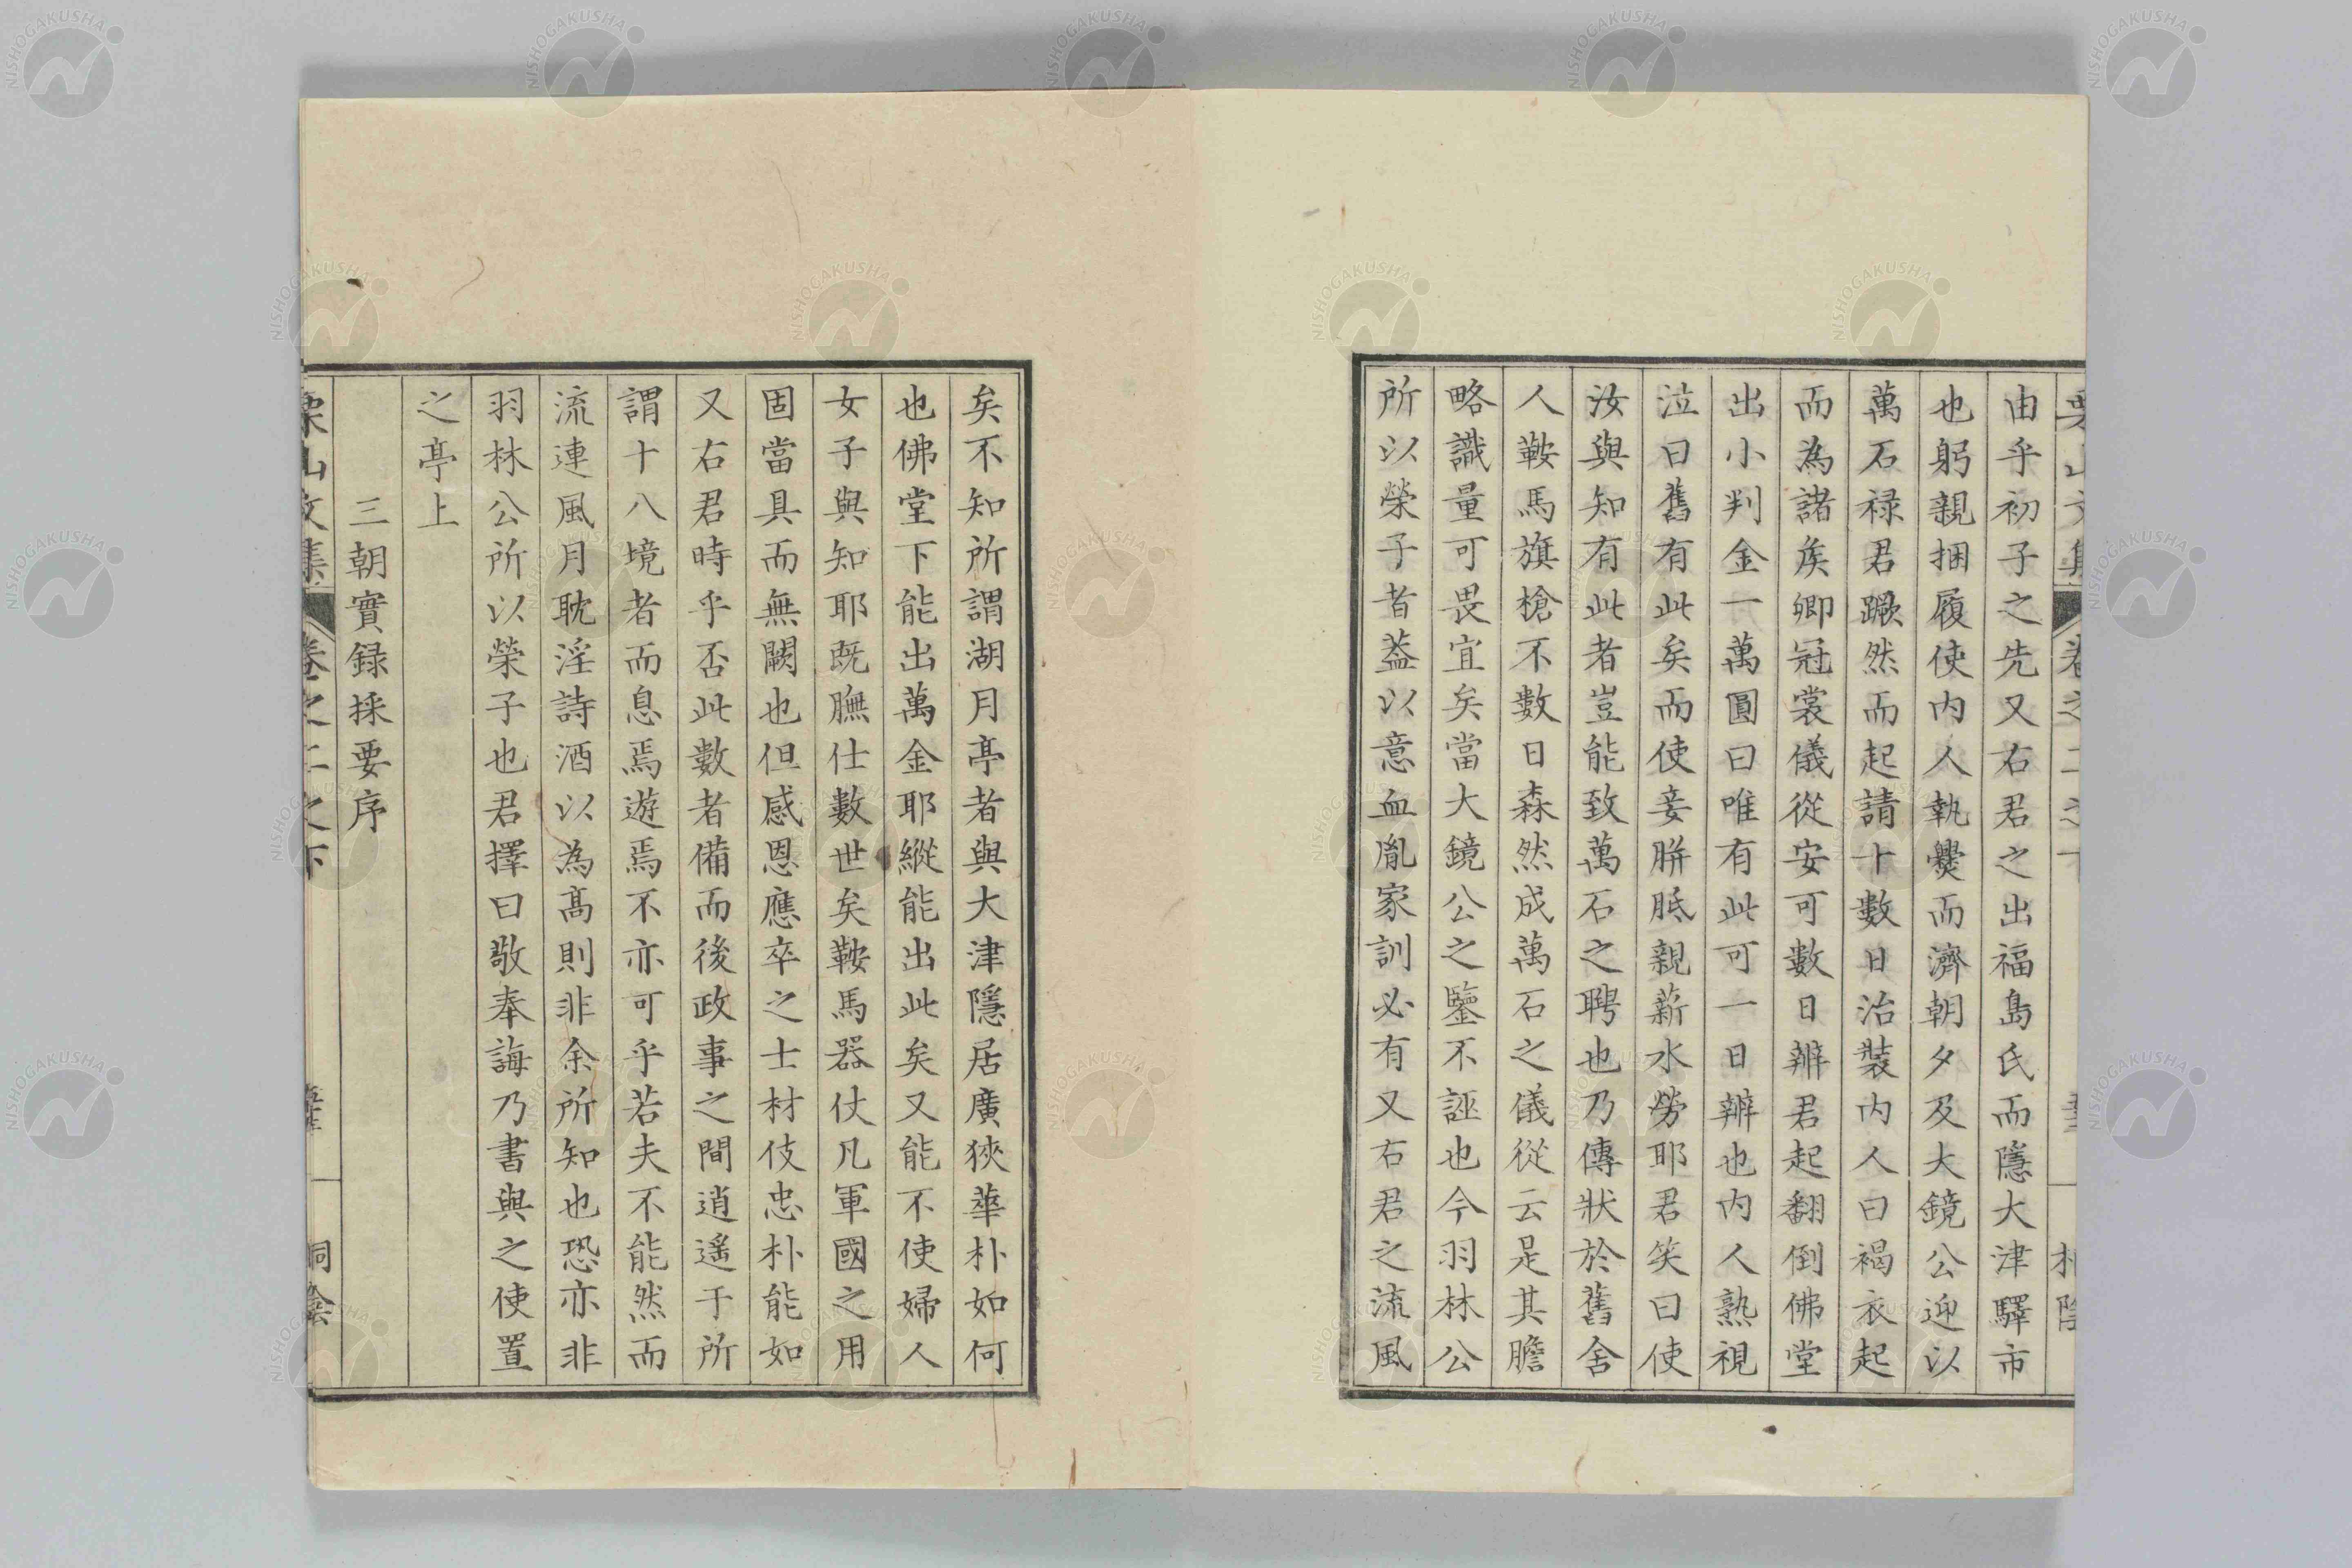 由乎初子之先又右君之出福島氏而隱大津驛市
也躬親捆履使内人執爨而濟朝夕及大鏡公迎以
萬石禄君蹶然而起請十數日治裝内人曰褐衣起
而為諸矦卿冠裳儀從安可數日辨君起翻倒佛堂
出小判金一萬圓曰唯有此可一日辨也内人熟視
泣曰舊有此矣而使妾胼胝親薪水勞耶君笑曰使
汝與知有此者豈能致萬石之聘也乃傳狀於舊舍
人鞍馬旗槍不數日森然成萬石之儀從云是其膽
略識量可畏宜矣當大鏡公之鑒不誣也今羽林公
所以榮子者葢以意血胤家訓必有又右君之流風
矣不知所謂湖月亭者與大津隱居廣狹華朴如何
也佛堂下能出萬金耶縱能出此矣又能不使婦人
女子與知耶既膴仕數世矣鞍馬器仗凡軍國之用
固當具而無闕也但感恩應卒之士材伎忠朴能如
又右君時乎否此數者備而後政事之間逍遙于所
謂十八境者而息焉遊焉不亦可乎若夫不能然而
流連風月耽淫詩酒以為髙則非余所知也恐亦非
羽林公所以榮子也君擇曰敬奉誨乃書與之使置
之亭上
三朝實録採要序
山文集
卷之二之下
NISHOGAKUSHA